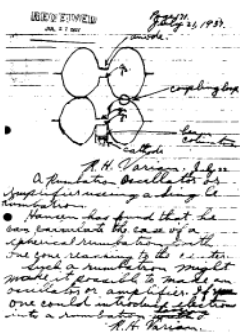 RECEIVED
JUL 27 1937
July 21, 1937.
anode
coupling loop
cathode
R. H. Varian, July 22
A Rumbatron Oscillator or
amplifier using a single
rumbatron.
Hansen has found that he
can calculate the case of a
spherical rumbatron with
one cone reaching to the center.
Such a rumbatron might
make it possible to make an
oscillator or amplifier. If
one could introduce electron
into a rumbatron
R. H. Varian.